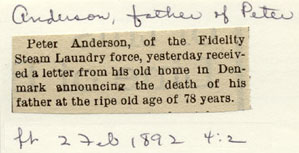 Anderson, father of Peter
Peter Anderson, of the Fidelity
Steam Laundry force, yesterday receiv-
ed a letter from his old home in Den-
mark announcing the death of his
father at the ripe old age of 78 years.
ft 2 Feb 1892 4:2